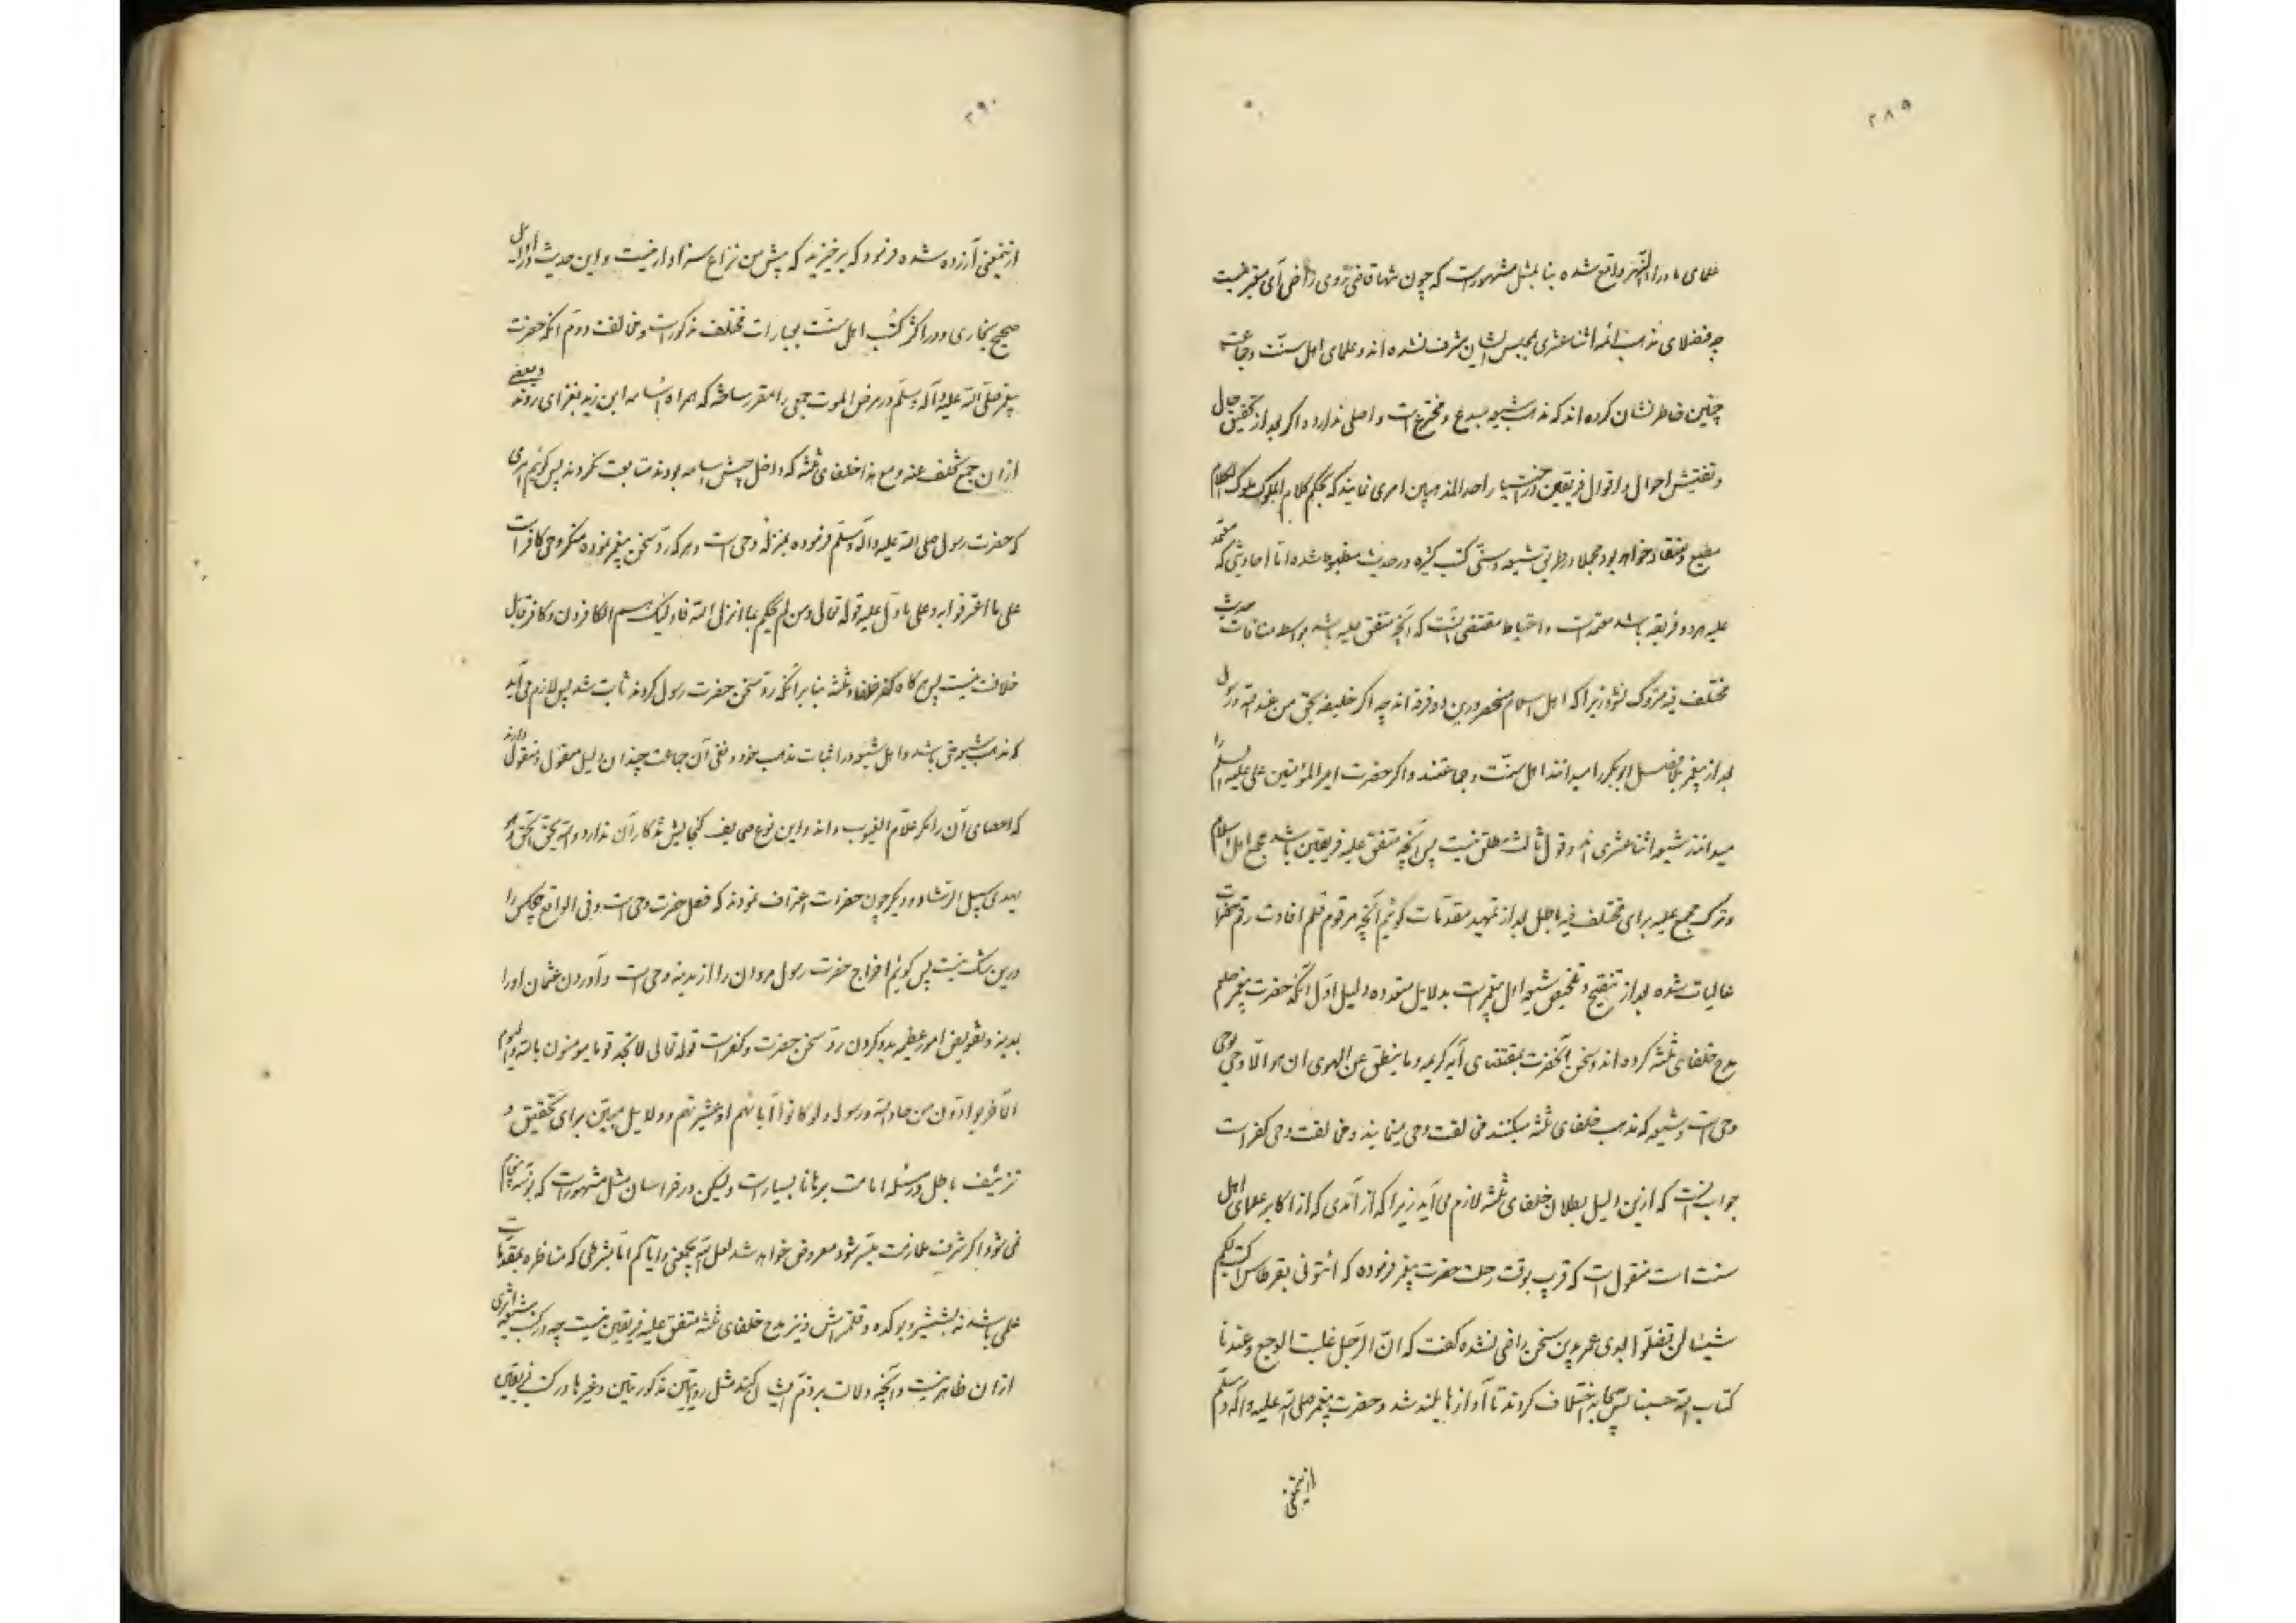 ۲۸۹
علمای ماوراء النهر واقع شده بنا بمثل مشهورست که چون تنها قاضی روی راضی آی مقبر طیبت
چه فضلای مذهب ائمه اثنا عشری بمجلس ایشان مشرف نشده اند و علمای اهل سنت و جماعت
چنین خاطر نشان کرده اند که مذهب شیعه مبدع و مخترع است و اصلی ندارد و اگر بعد از تحقیق حال
و تفتیش احوال و اقوال فریقین در اختیار احد المذهبین امری نمایند که بحکم کلام الملوک ملوک الکلام
مطیع و منقاد خواهد بود مجملا در طریق شیعه و سنی کتب کثیره در حدیث مضبوط شده اما احادیثی که متفق
علیه هر دو فریقه باشد معتمدست و احتیاط مقتضی آنست که آنچه متفق علیه باشد بواسطه منافات حدیث
مختلف فیه متروک نشود زیرا که اهل اسلام منحصر درین دو فرقه اند چه اگر خلیفه بحق من عند الله و رسول
بعد از پیغمبر بلا فصل ابوبکر را میدانند اهل سنت و جماعتند و اگر حضرت امیر المؤمنین علی علیه السلام را
میدانند شیعه اثنا عشری اند و قول ثالث مطلق نیست پس آنچه متفق علیه فریقین باشد مجمع اهل اسلام
و ترک مجمع علیه برای مختلف فیه باطل بعد از تمهید مقدمات گوئیم آنچه مرقوم قلم افادت رقم حضرات
عالیات شده بعد از تنقیح و تلخیص شیعه اهل مقبرست بدلایل متعدده دلیل اول آنکه حضرت پیغمبر صلعم
مدح خلفای ثلثه کرده اند و سخن آنحضرت بمقتضای آیه کریمه و ما ینطق عن الهوی ان هو الا وحی یوحی
وحی است و شیعه که مذهب خلفای ثلثه میکنند مخالفت وحی مینمایند و مخالفت وحی کفرست
جواب آنست که ازین دلیل بطلان خلفای ثلثه لازم می آید زیرا که از آمدی که از اکابر علمای اهل
سنت است منقول است که قریب بوقت رحلت حضرت پیغمبر فرموده که ائتونی بقرطاس اکتب لکم
شیئا لن تضلوا بعدی عمر بدین سخن راضی نشده گفت که ان الرجل غلبت الوجع و عندنا
کتاب الله حسبنا پس صحابه اختلاف کردند تا آوازها بلند شد و حضرت پیغمبر صلی الله علیه و آله و سلم
ازینمعنی
۲۹۰
ازینمعنی آزرده شده فرمود که برخیزید که پیش من نزاع سزاوار نیست و این حدیث در اوایل
صحیح بخاری و در اکثر کتب اهل سنت بعبارات مختلف مذکور است و مخالفت دوم آنکه حضرت
پیغمبر صلی الله علیه و آله و سلم در مرض الموت جمعی را مقرر ساخته که همراه اسامه ابن زید بغزای روند و بعضی
از آن جمع تخلف عنه و مع هذا خلفای ثلثه که داخل جیش اسامه بودند متابعت نکردند پس گوئیم امری
که حضرت رسول صلی الله علیه و آله و سلم فرموده بمنزله وحی است و هر که رد سخن پیغمبر نموده منکر وحی کافر است
علی ما اعترفوا به و علی ما دل علیه قوله تعالی و من لم یحکم بما انزل الله فاولئک هم الکافرون و کافر قابل
خلافت نیست پس هر گاه کفر خلفاء ثلثه بنا بر آنکه رد سخن حضرت رسول کردند ثابت شد پس لازم می آید
که مذهب شیعه حق باشد و اهل شیعه در اثبات مذهب خود و نفی آن جماعت چندان دلیل معقول و منقول دارند
که احصای آن را مگر علام الغیوب داند و این نوع صحایف گنجایش تذکار آن ندارد والله یحق الحق و هو
یهدی سبیل الرشاد و دیگر چون حضرات اعتراف نمودند که فعل حضرت وحی است و فی الواقع هیچکس را
درین شک نیست پس گوئیم اخراج حضرت رسول مروان را از مدینه وحی است و آوردن عثمان او را
بمدینه و تفویض امور عظیمه بدو کردن رد سخن حضرت و کفرست قوله تعالی لا تجد قوما یومنون بالله و الیوم
الآخر یوادون من حاد الله و رسوله ولو کانوا آبائهم او عشیرتهم و دلایل مبین برای تحقیق و
تزئیف باطل در مسئله امامت برهانا بسیارست ولیکن در خراسان مثل مشهورست که بوسه به پیغام
نمی شود اگر شرف ملازمت میسر شود معروض خواهد شد لعل الله یجمعنی و ایاکم اما بشرطی که مناظره بمقدمات
علمی باشد نه بشمشیر و بوکده و قلمتراش و نیز مدح خلفای ثلثه متفق علیه فریقین نیست چه در کتب شیعه اثری
از آن ظاهر نیست و آنچه دلالت بر ذم ایشان کند مثل روایتین مذکورتین و غیرها در کتب فریقین